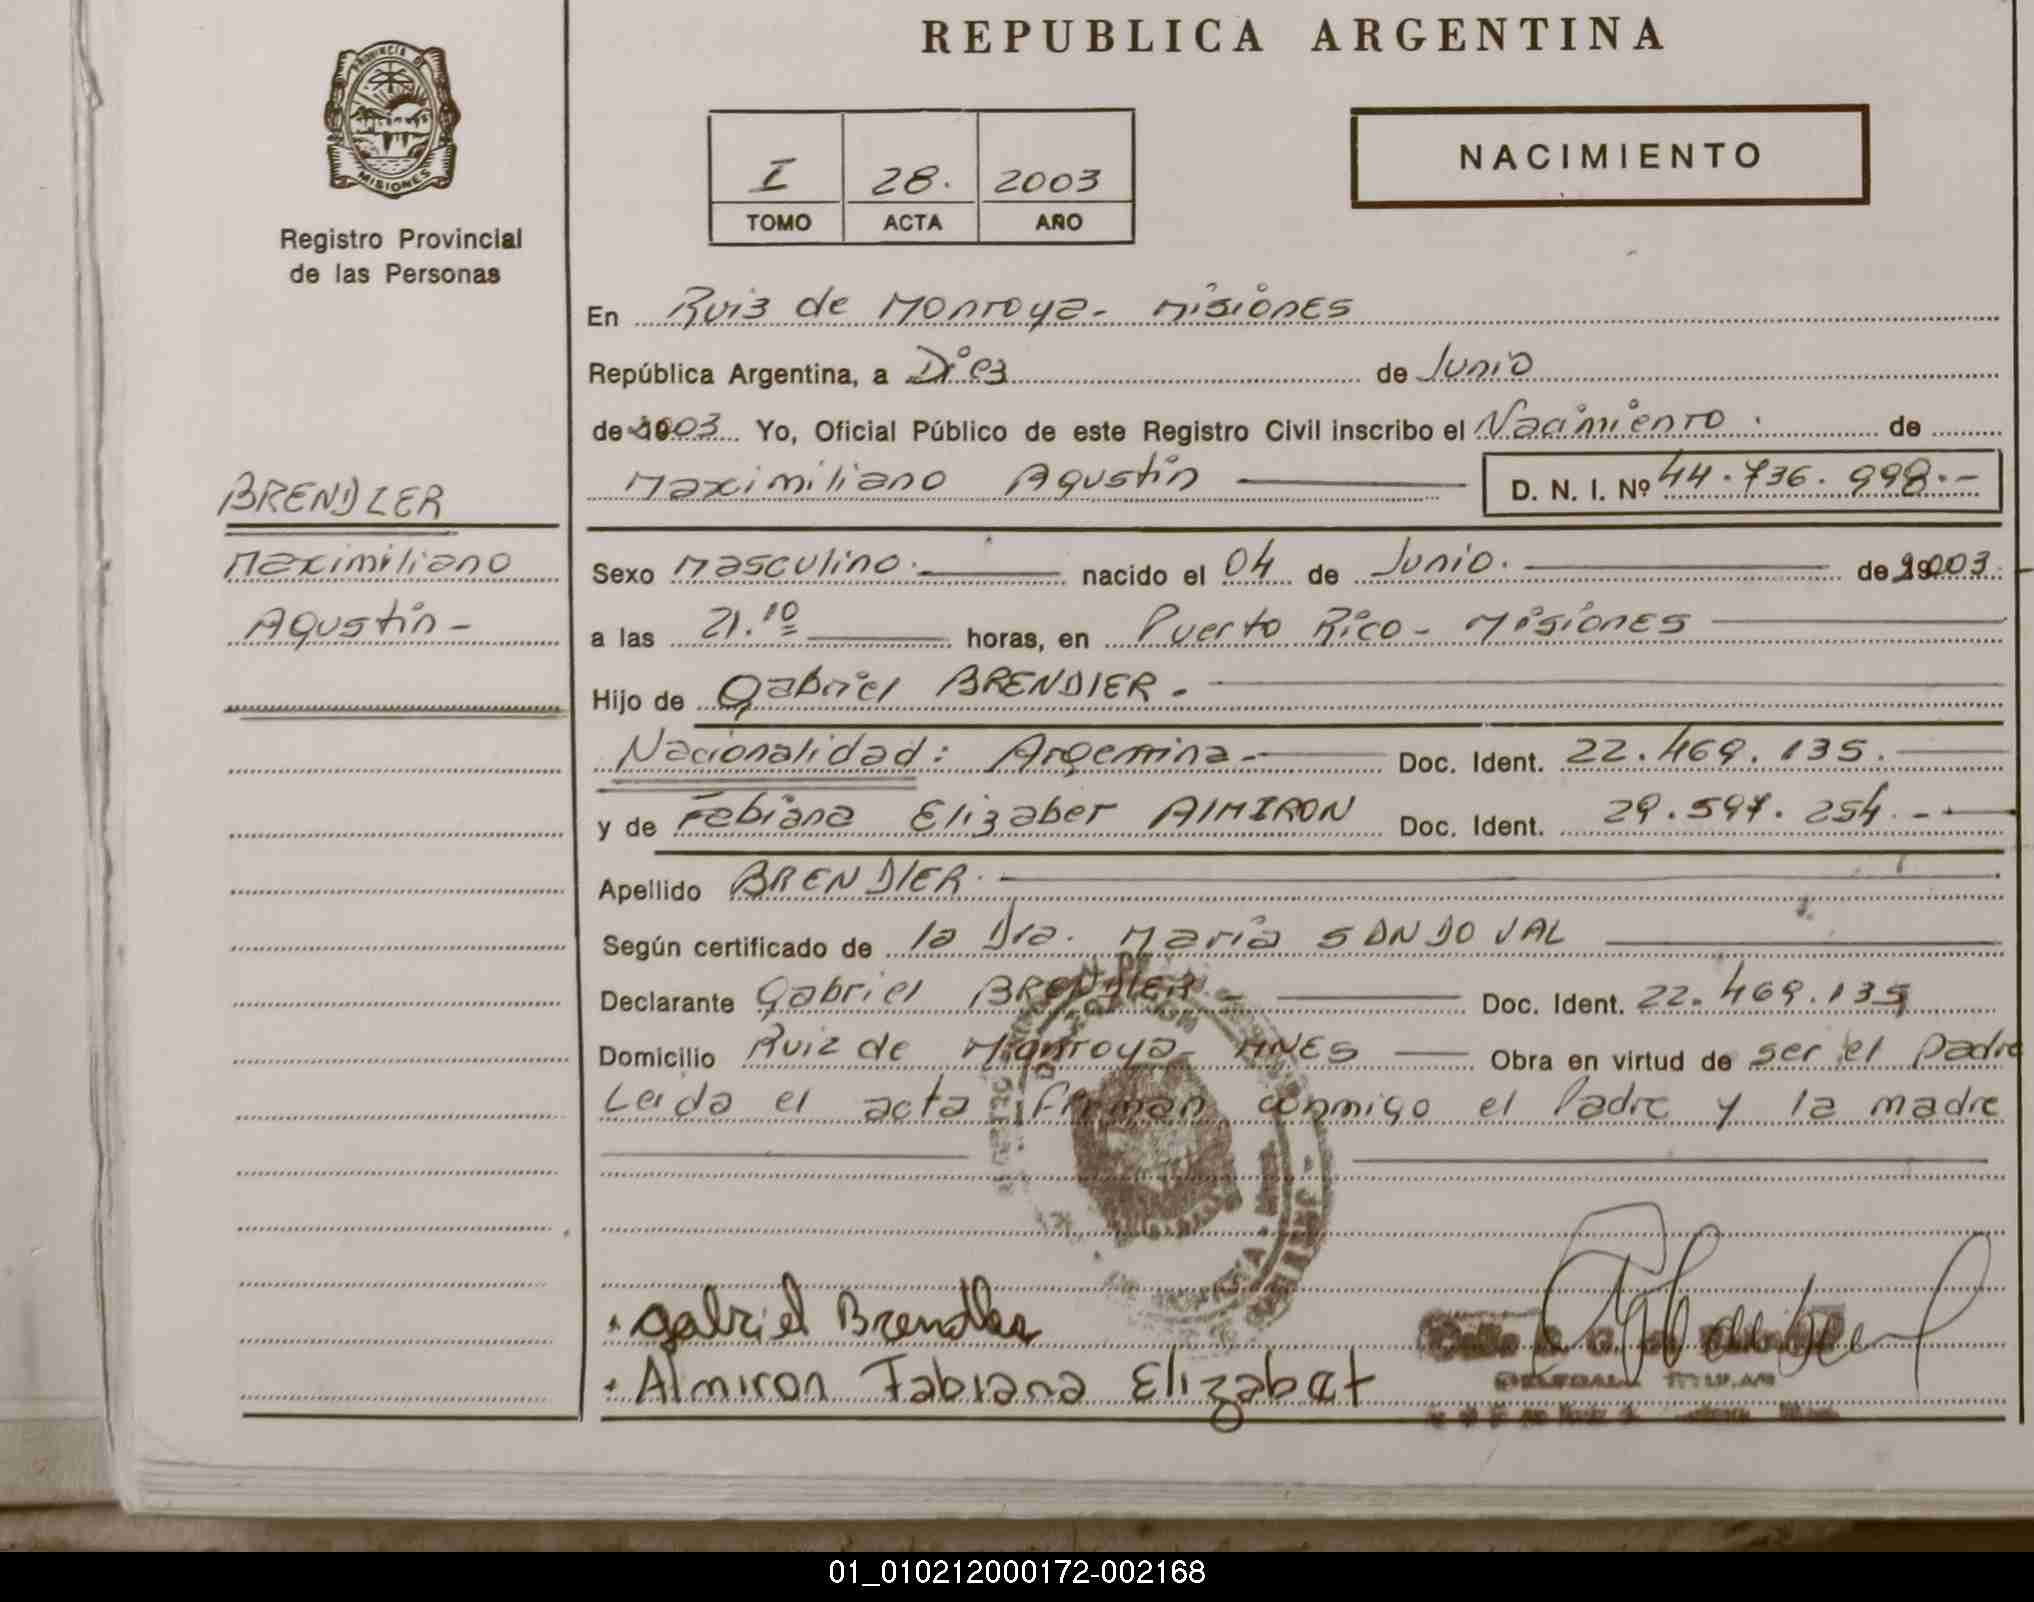 PROVINCIA D
MISIONES
Registro Provincial
de las Personas
BRENDLER
Maximiliano
Agustín-
REPUBLICA ARGENTINA
I 28. 2003
TOMO ACTA AÑO
NACIMIENTO
En Ruiz de Montoya- Misiones
República Argentina, a Diez de Junio
de 2003 Yo, Oficial Público de este Registro Civil inscribo el Nacimiento. de
Maximiliano Agustín D. N. I. Nº 44.736.998.-
Sexo Masculino. nacido el 04 de Junio. de 2003
a las 21.10 horas, en Puerto Rico- Misiones
Hijo de Gabriel BRENDLER.
Nacionalidad: Argentina- Doc. Ident. 22.469.135.
y de Fabiana Elizabet ALMIRON Doc. Ident. 29.597.254.-
Apellido BRENDLER.
Según certificado de la Dra. María SANDOVAL
Declarante Gabriel BRENDLER- Doc. Ident. 22.469.135
Domicilio Ruiz de Montoya- MNES Obra en virtud de ser el padre
Leida el acta firman conmigo el Padre y la madre
Gabriel Brendler
Almiron Fabiana Elizabet
01_010212000172-002168